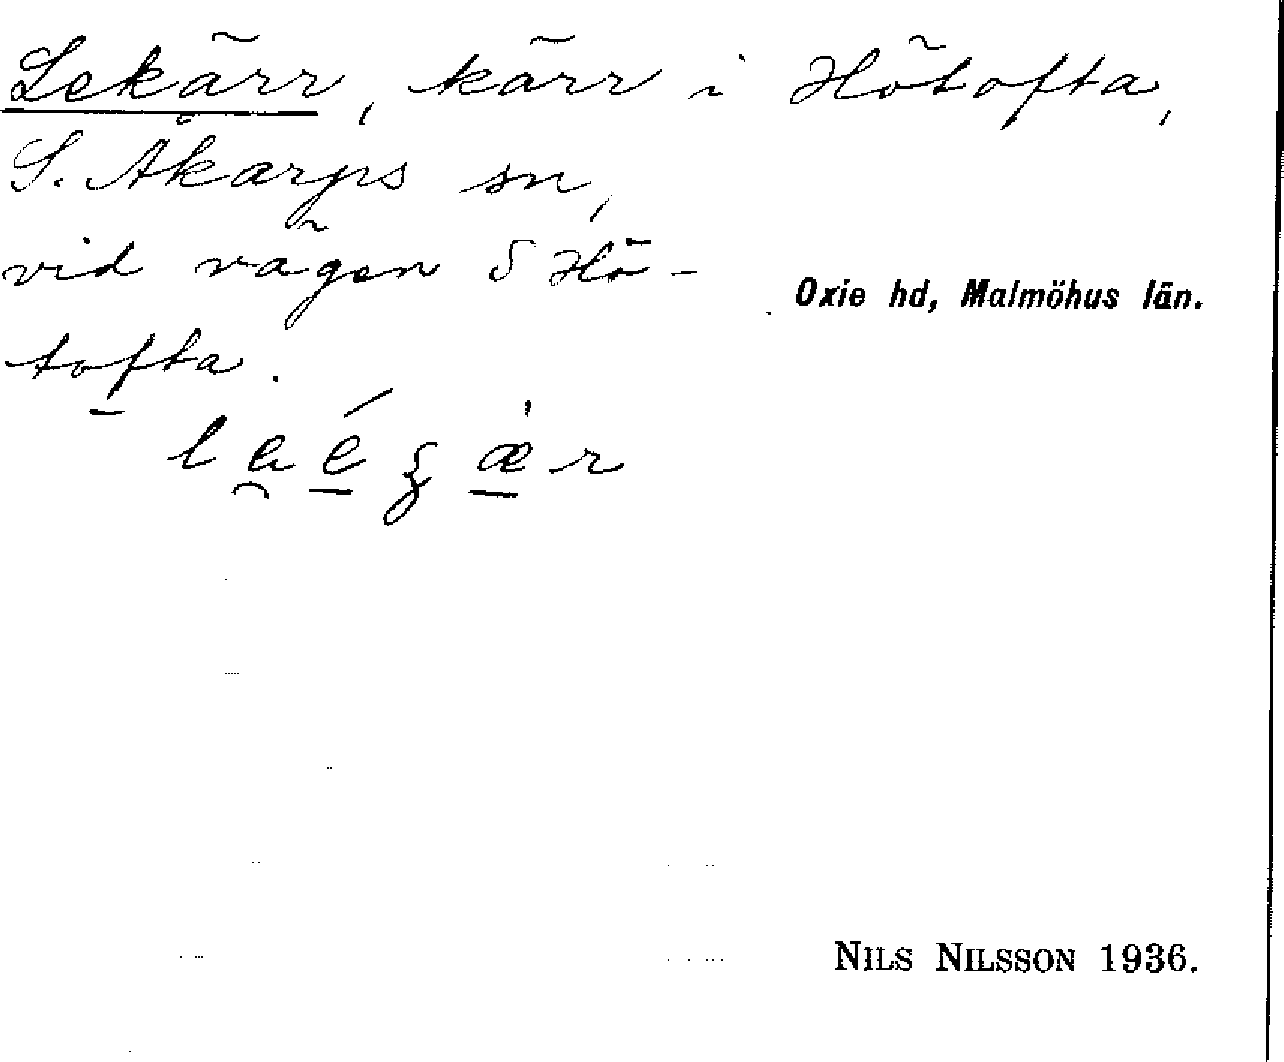 Lekärr, kärr i Hötofta,
S. Åkarps sn,
vid vägen S Hö-
tofta.
Oxie hd, Malmöhus län.
NILS NILSSON 1936.